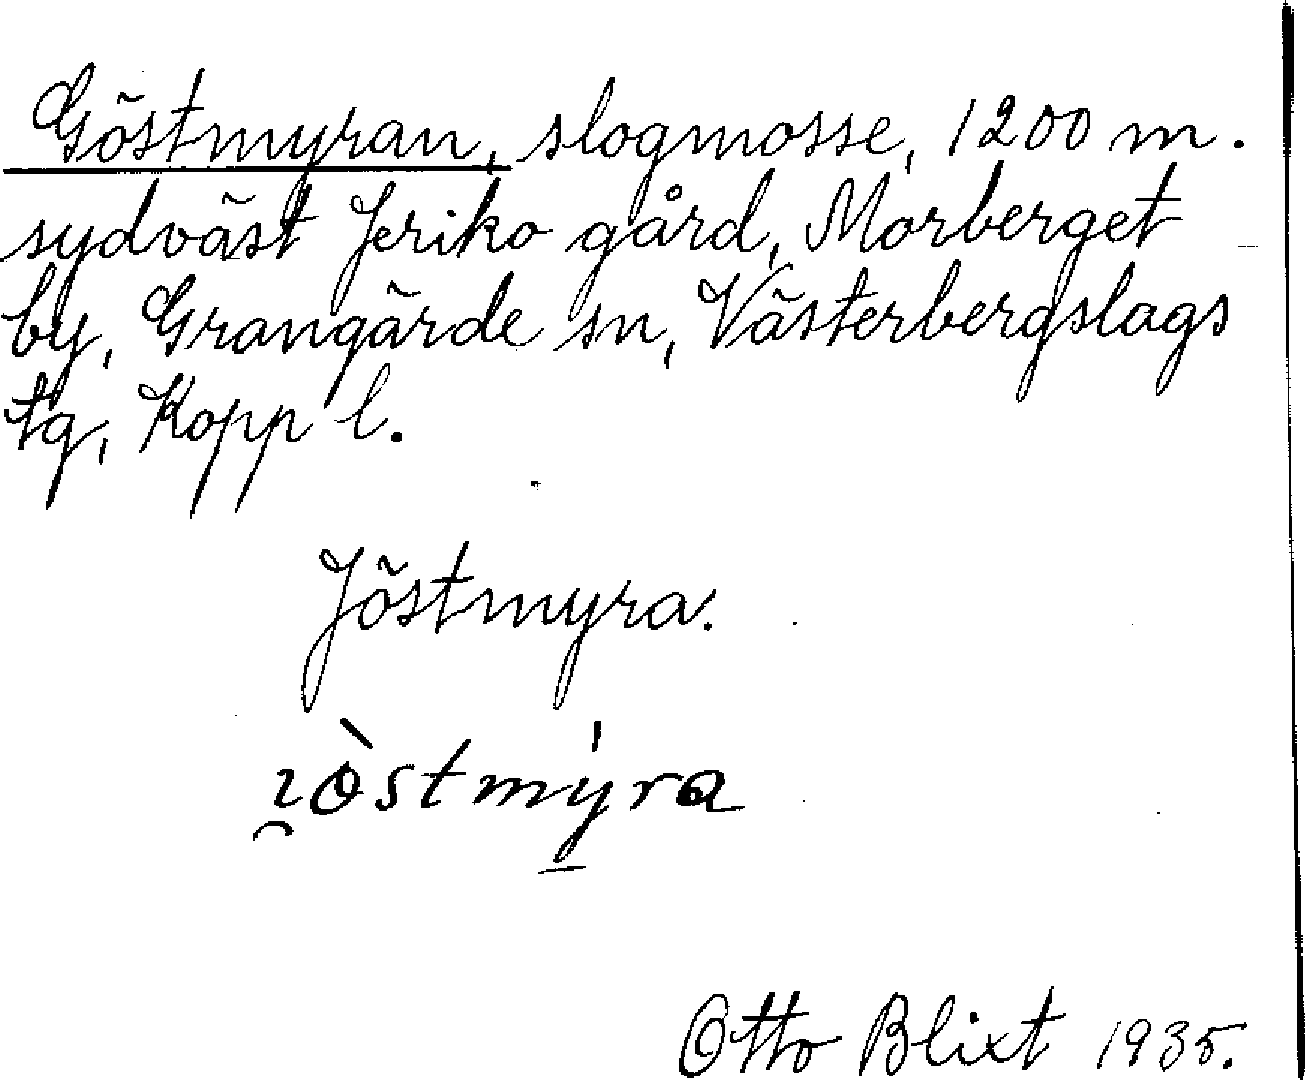 Göstmyran, slogmosse, 1200 m.
sydväst Jeriko gård, Morberget
by, Grangärde sn, Västerbergslags
tg, Kopp l.
Jöstmyra.
ı̯òstmy̠̍ra
Otto Blixt 1935.